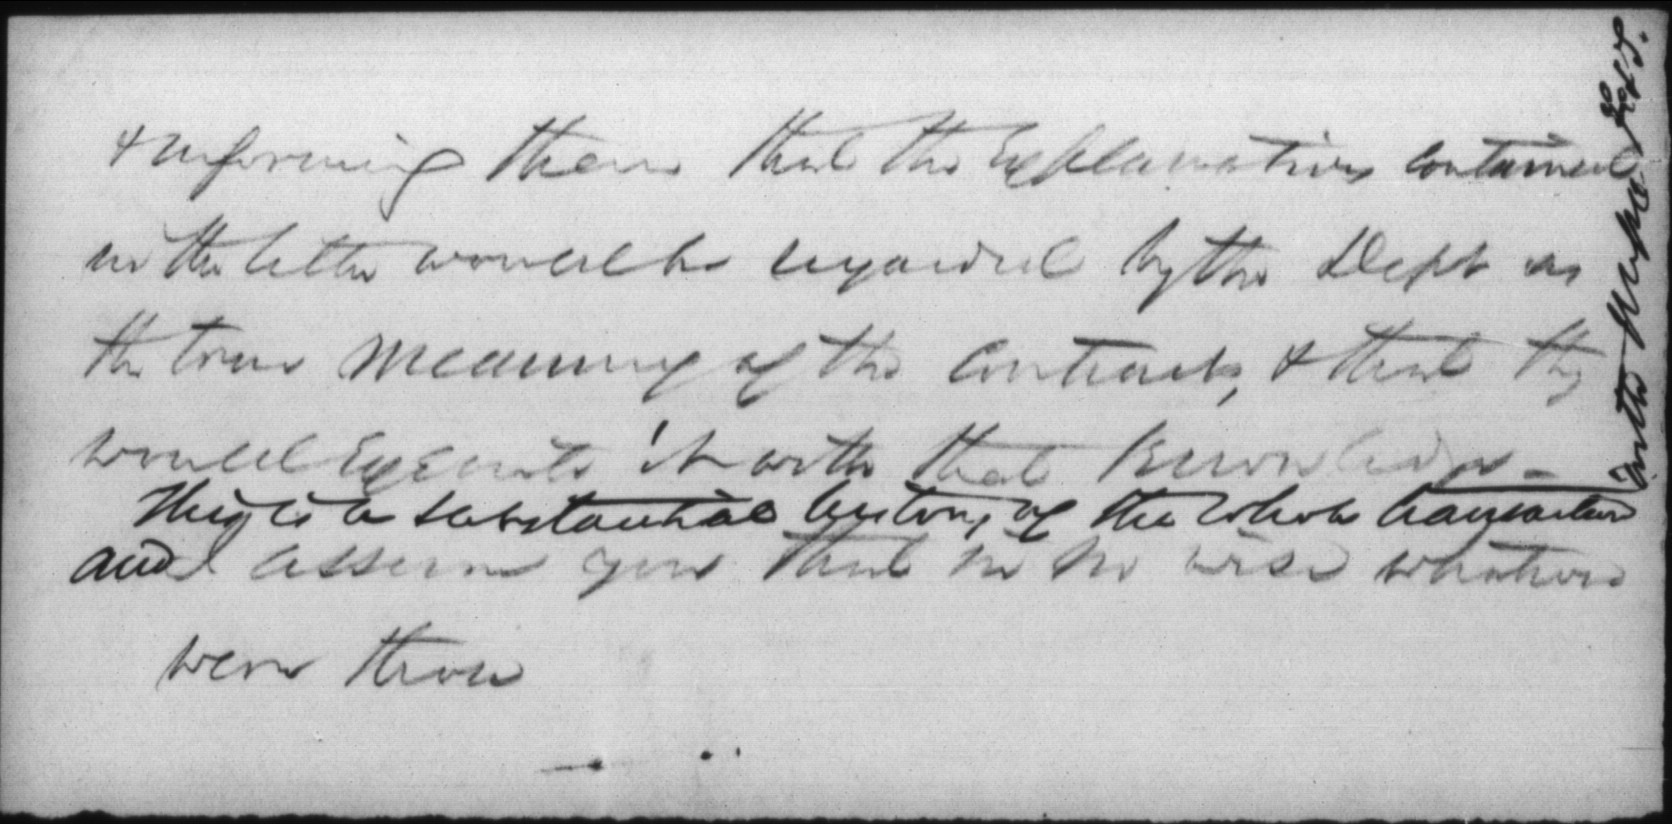 & informing them that the Explanations contained
in the letter would be regarded by the Dept as
the true meaning of the Contract, & that they
would Execute it with that Knowledge -
This is a substantial history of the whole transaction
and I assure you that in no wise whatever
were those
with